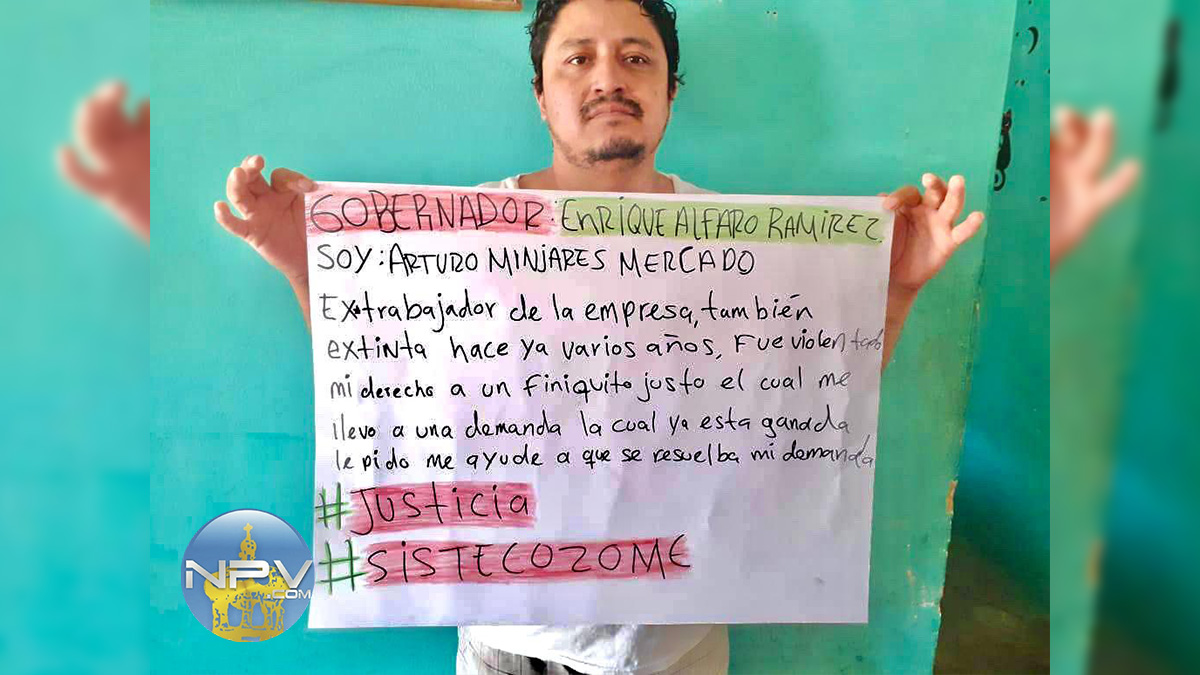 GOBERNADOR: ENRIQUE ALFARO RAMIREZ.
SOY: ARTURO MINJARES MERCADO
Extrabajador de la empresa, también
extinta hace ya varios años, Fue violentado
mi derecho a un Finiquito justo el cual me
llevo a una demanda la cual ya esta ganada
le pido me ayude a que se resuelba mi demanda
#Justicia
#SISTECOZOME
NPV
.COM